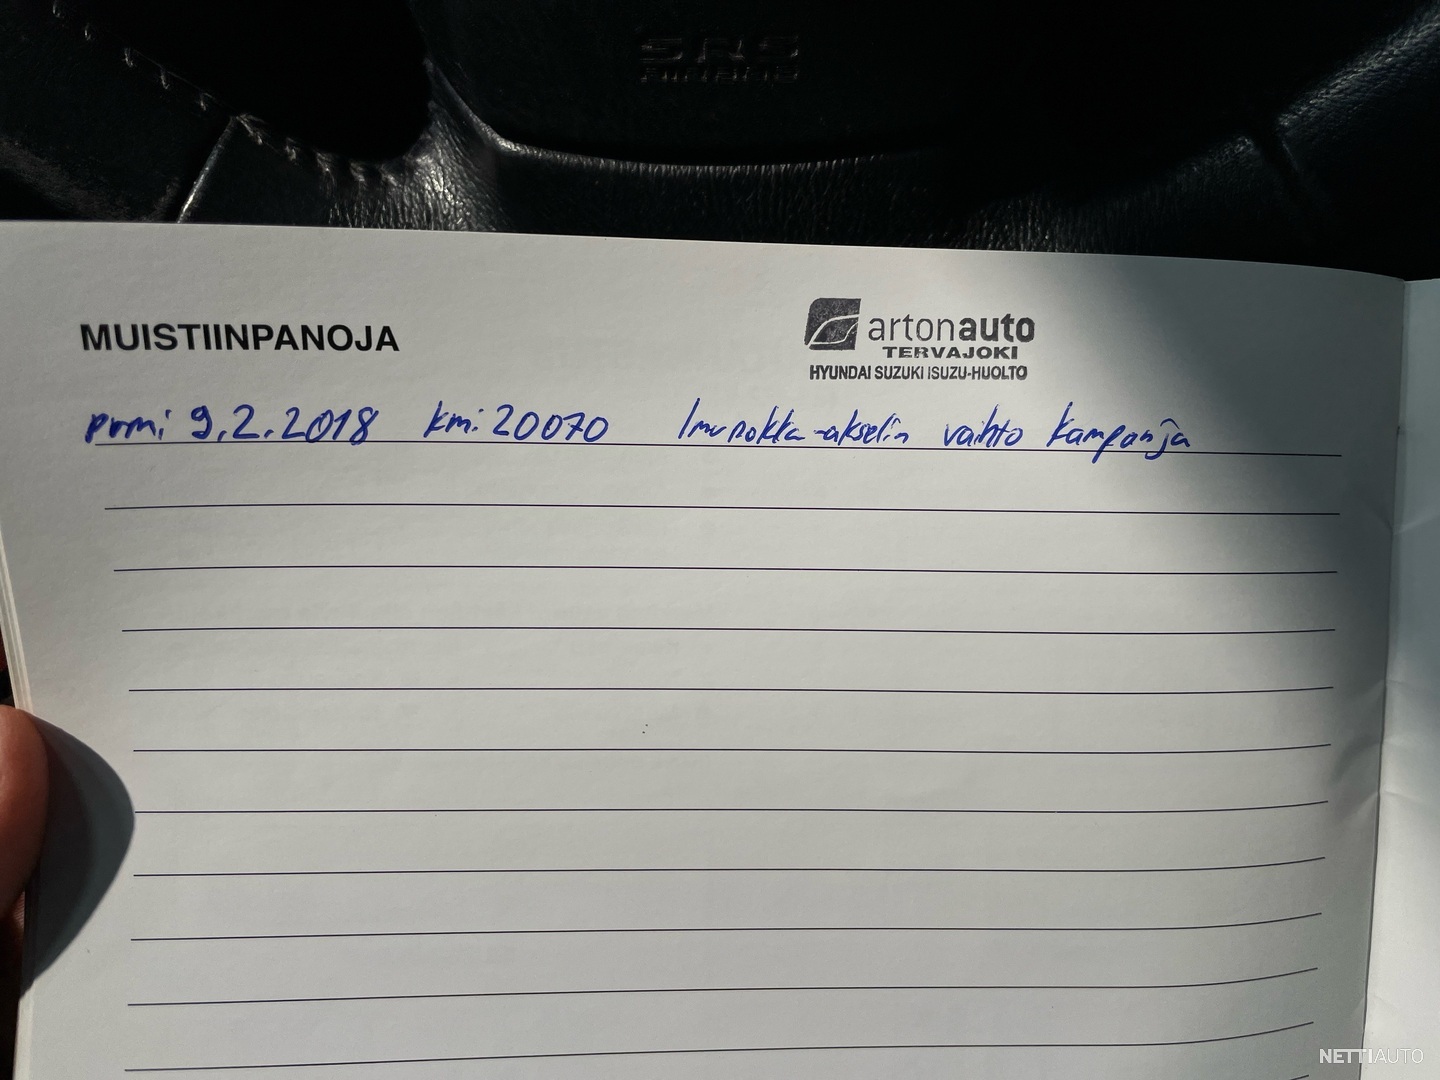 SRS
AIRBAG
MUISTIINPANOJA
artonauto
TERVAJOKI
HYUNDAI SUZUKI ISUZU-HUOLTO
pvm: 9.2.2018 km: 20070 Imunokka-akselin vaihto kampanja
NETTIAUTO